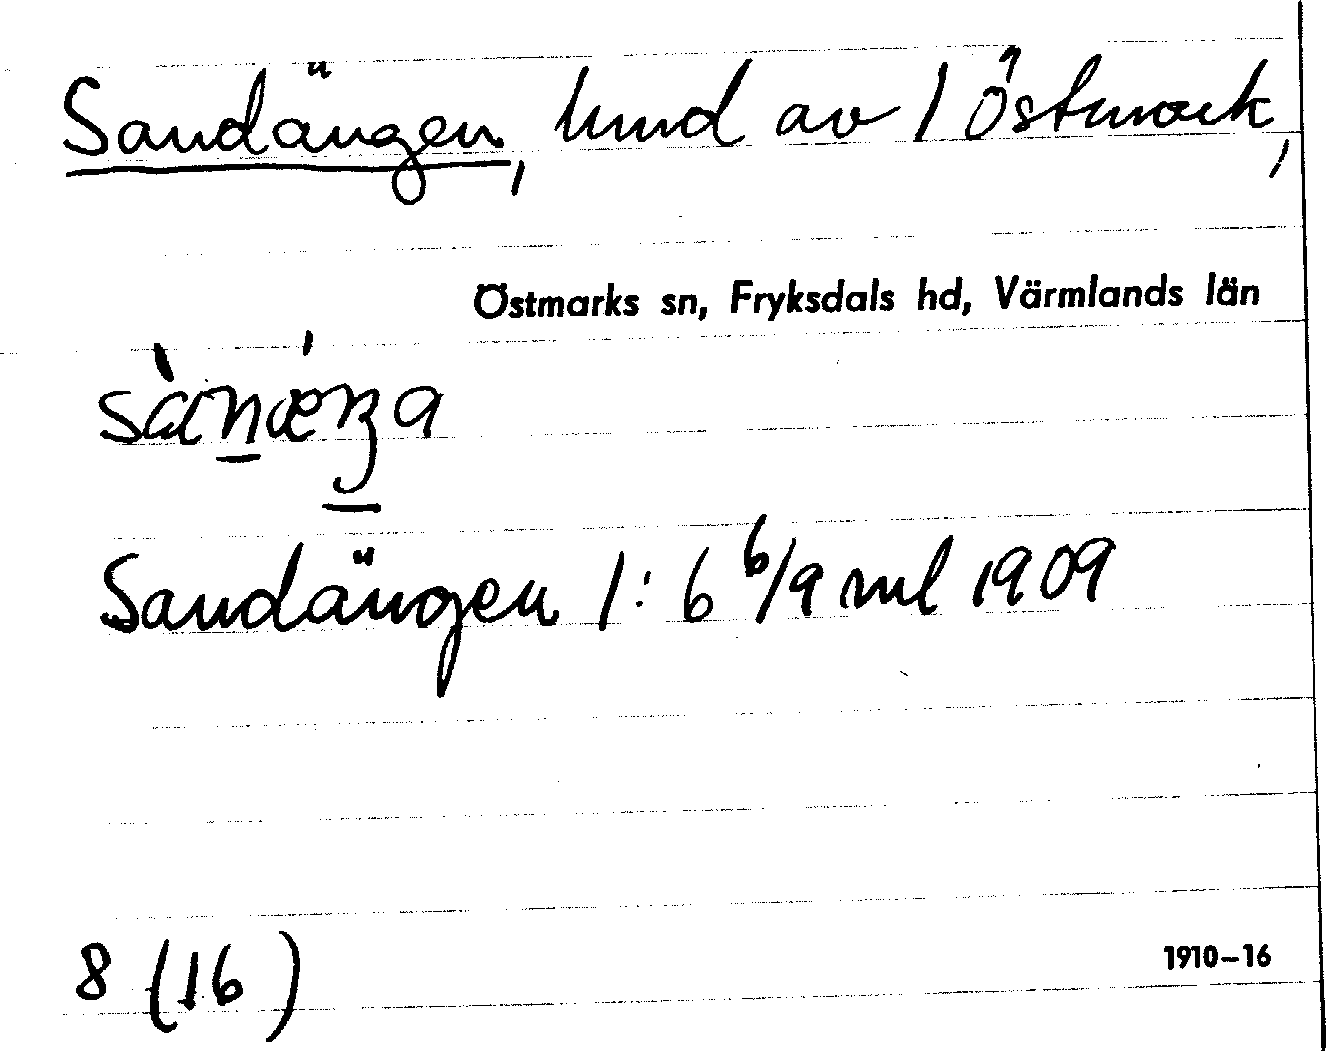 Sandängen, hmd av 1 Östmark,
Östmarks sn, Fryksdals hd, Värmlands län
Sandängen 1:6 6/9 ml 1909
8 (16)
1910–16